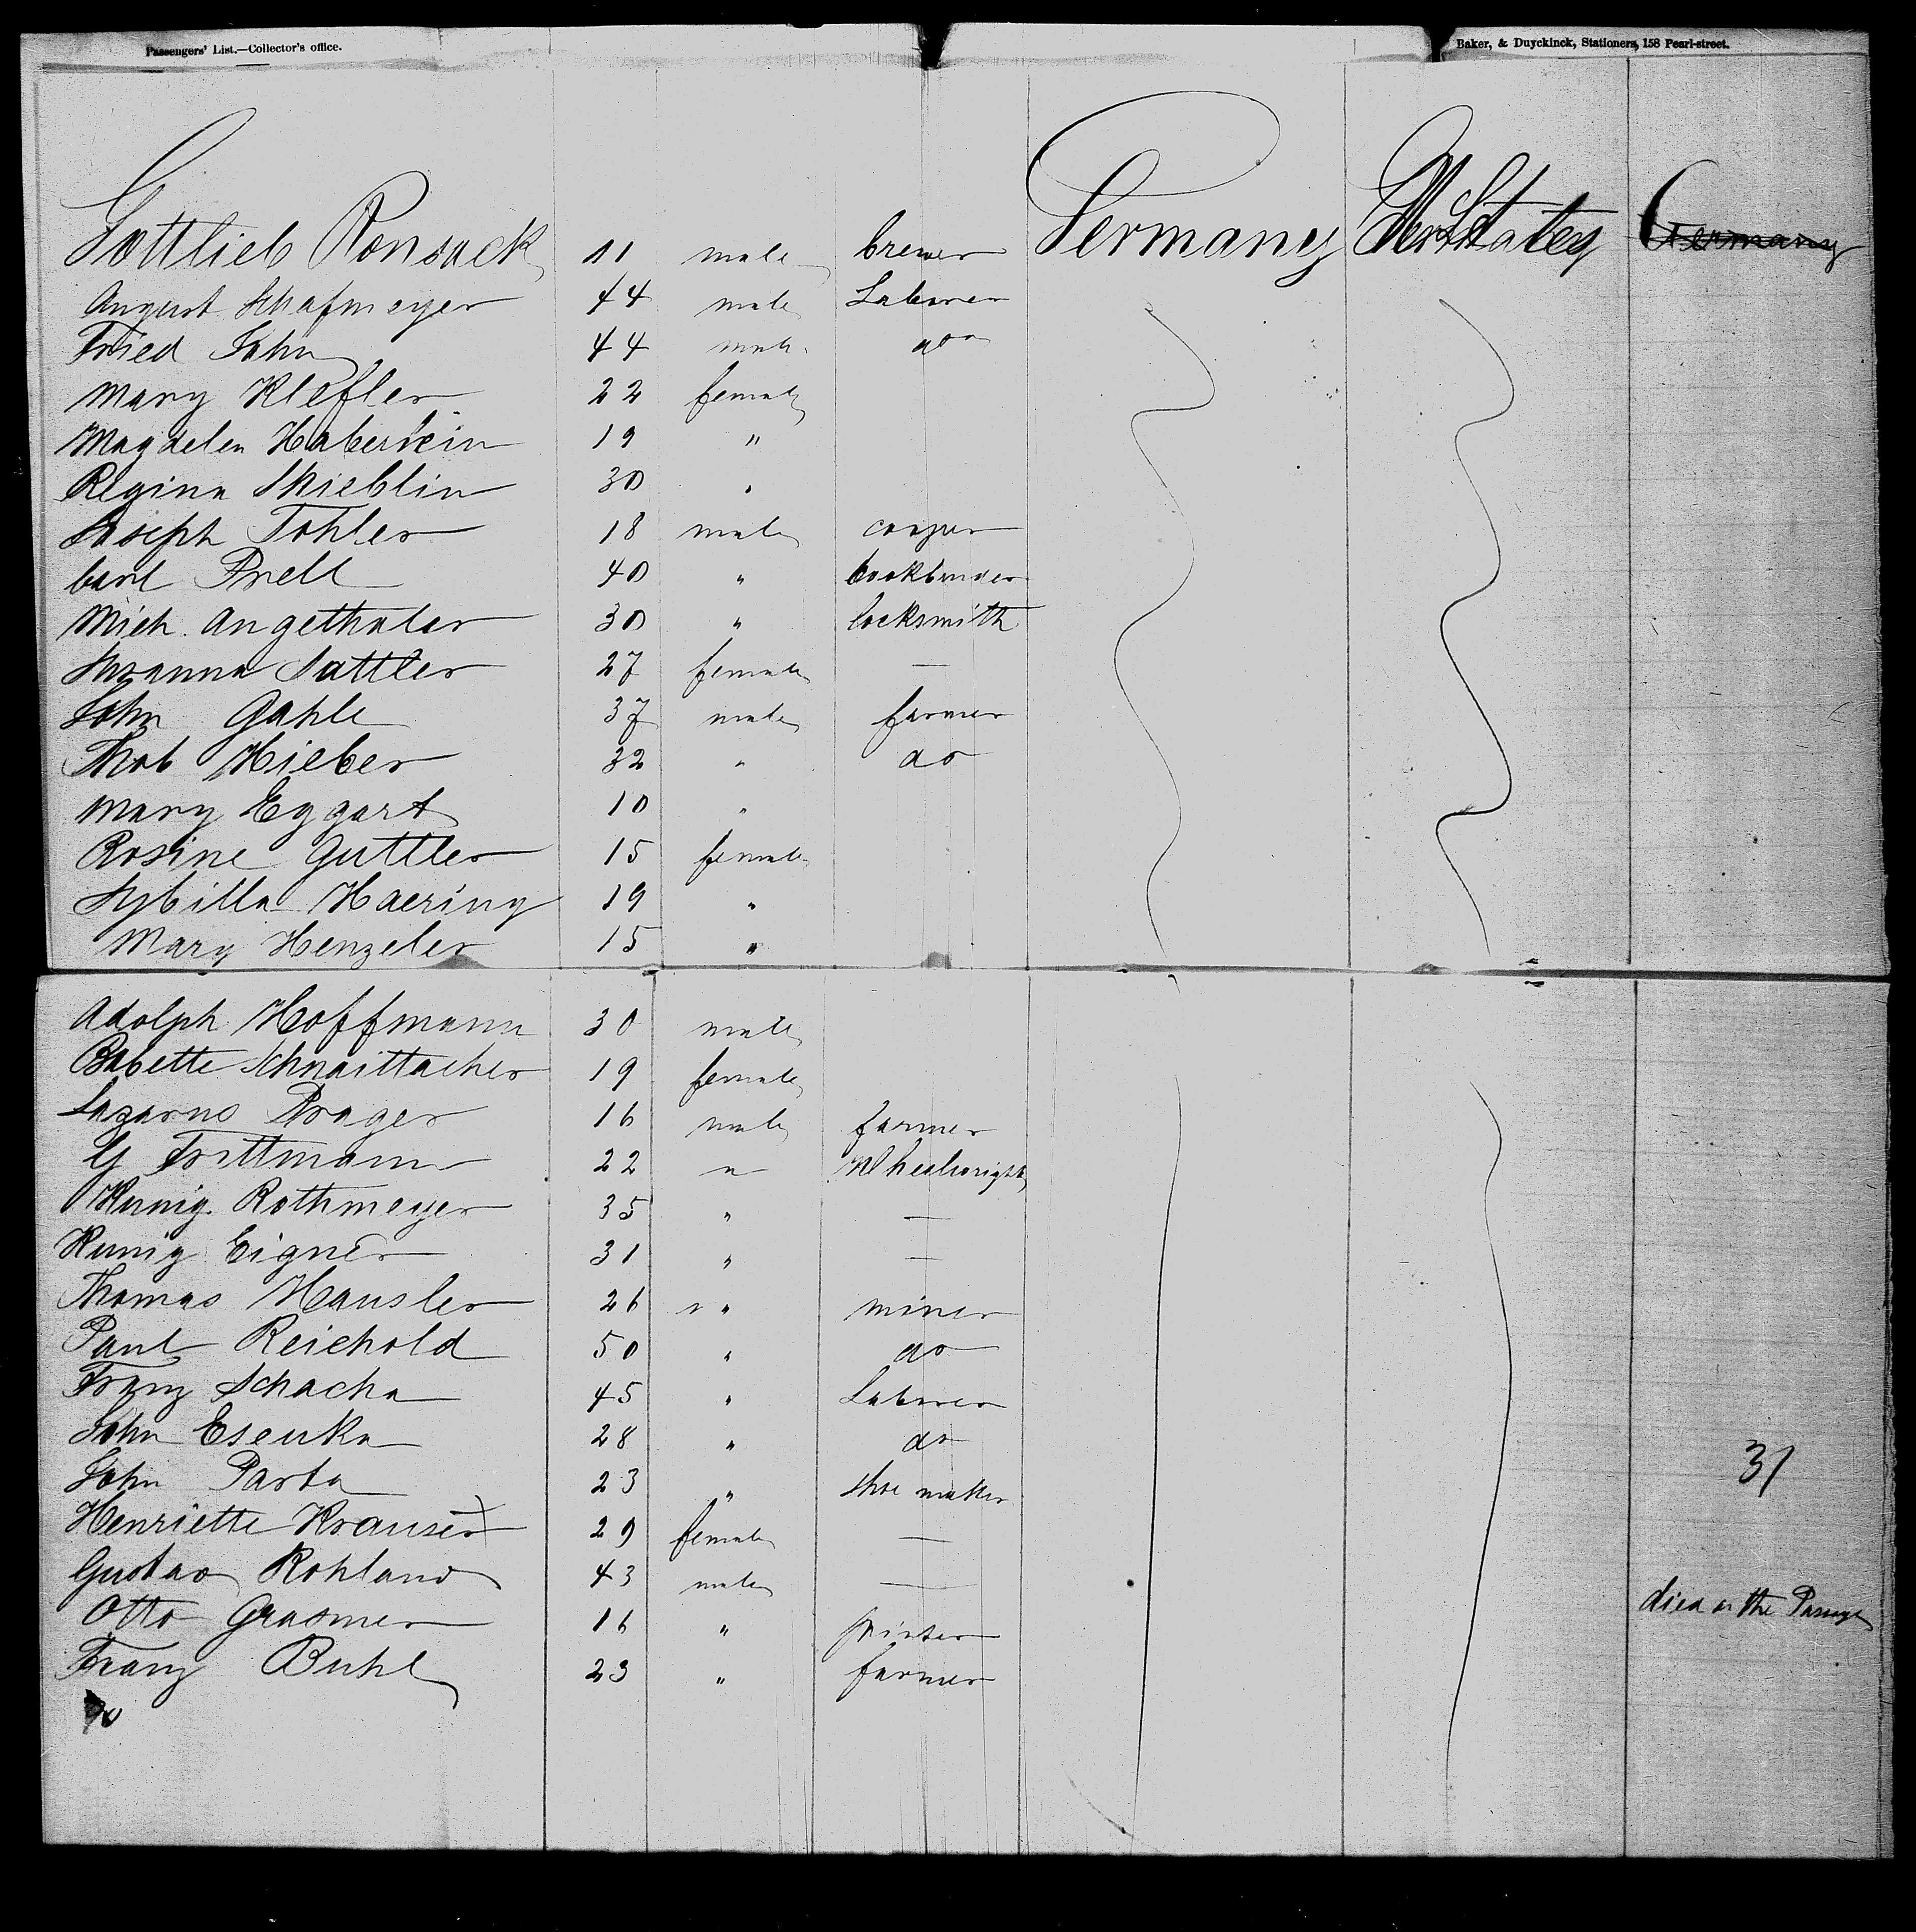 Passengers' List.—Collector's office. Baker, & Duyckinck, Stationers, 158 Pearl-street.
Gottlieb Ronsack 11 male brewer Germany States Germany
August Schafmeyer 44 male Laborer
Fried John 44 male do
Mary Klefler 22 female
Magdelen Haberlein 19 "
Regina Schieblin 30 "
Joseph Tohler 18 male cooper
Carl Prell 40 " bookbinder
Mich. Angethaler 30 " locksmith
Susanna Sattler 27 female —
John Gahle 37 male farmer
Thob Hieber 32 " do
Mary Eggart 10 "
Rosine Guttler 15 female
Sybilla Haering 19 "
Mary Henzeler 15 "
Adolph Hoffmann 30 male
Babette Schnaittacher 19 female
Lazarus Prager 16 male farmer
G Trittmann 22 " Wheelwright
Kunig. Rothmeyer 35 " —
Kunig Eigner 31 " —
Thomas Hausler 26 " miner
Paul Reichold 50 " do
Franz Schacha 45 " Laborer
John Esenka 28 " do
John Parta 23 " shoe maker 31
Henriette Krauser 29 female —
Gustav Rohland 43 male — died on the Passage
Otto Grasmer 16 " printer
Franz Buhl 23 " farmer